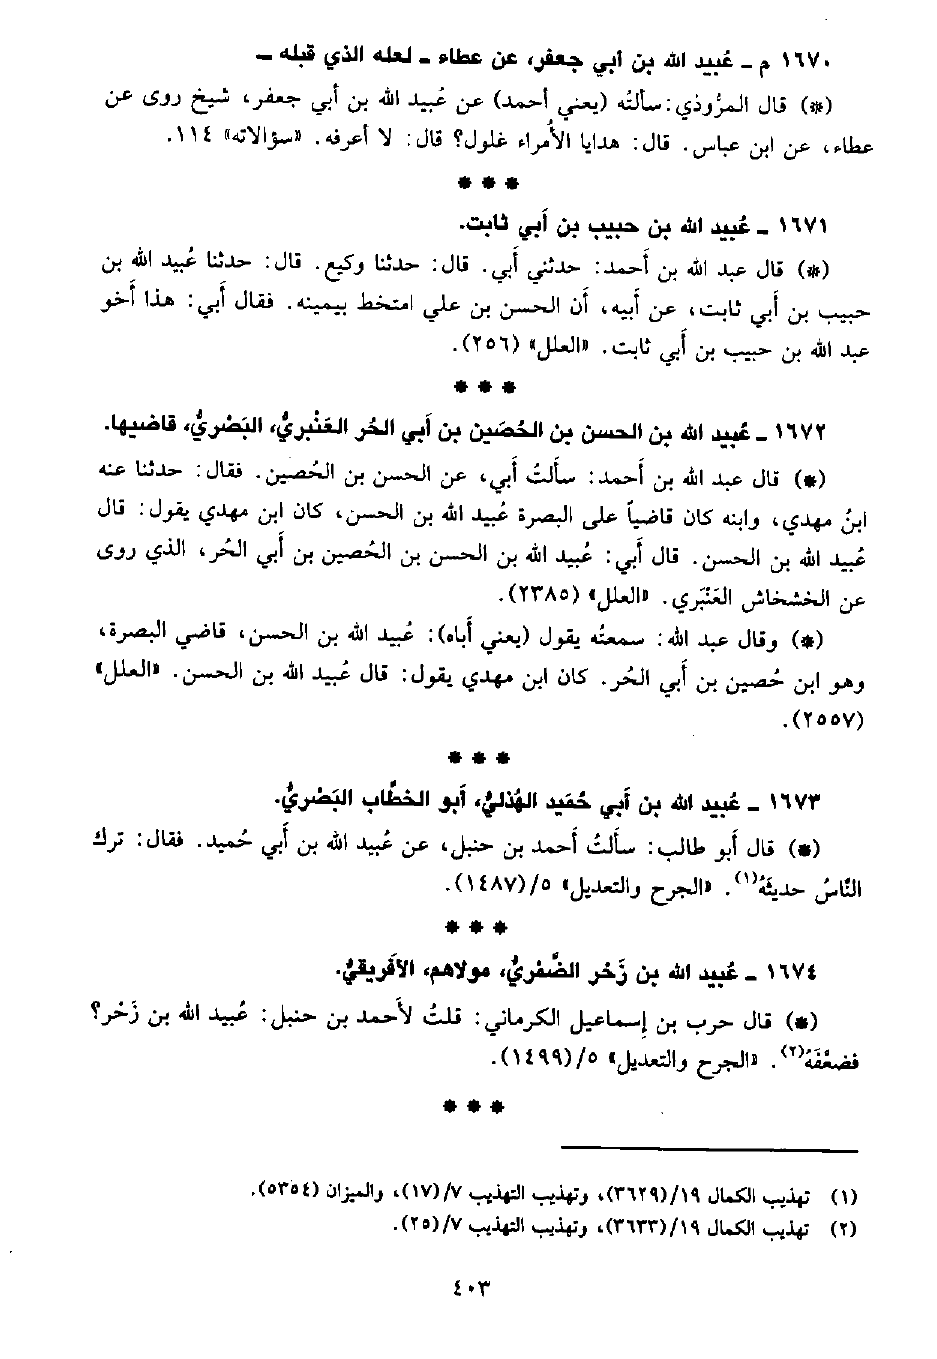 ١٦٧٠ م ـ عُبيد الله بن أبي جعفر، عن عطاء ـ لعله الذي قبله ـ
(*) قال المرُّوذي: سألتُه (يعني أحمد) عن عُبيد الله بن أبي جعفر، شيخ روى عن
عطاء، عن ابن عباس. قال: هدايا الأمراء غلول؟ قال: لا أعرفه. «سؤالاته» ١١٤.
* * *
١٦٧١ ـ عُبيد الله بن حبيب بن أبي ثابت.
(*) قال عبد الله بن أحمد: حدثني أبي. قال: حدثنا وكيع. قال: حدثنا عُبيد الله بن
حبيب بن أبي ثابت، عن أبيه، أن الحسن بن علي امتخط بيمينه. فقال أبي: هذا أخو
عبد الله بن حبيب بن أبي ثابت. «العلل» (٢٥٦).
* * *
١٦٧٢ ـ عُبيد الله بن الحسن بن الحُصَين بن أبي الحُر العَنْبريُّ، البَصْريُّ، قاضيها.
(*) قال عبد الله بن أحمد: سألتُ أبي، عن الحسن بن الحُصين. فقال: حدثنا عنه
ابنُ مهدي، وابنه كان قاضياً على البصرة عُبيد الله بن الحسن، كان ابن مهدي يقول: قال
عُبيد الله بن الحسن. قال أبي: عُبيد الله بن الحسن بن الحُصين بن أبي الحُر، الذي روى
عن الخشخاش العَنْبَري. «العلل» (٢٣٨٥).
(*) وقال عبد الله: سمعتُه يقول (يعني أباه): عُبيد الله بن الحسن، قاضي البصرة،
وهو ابن حُصين بن أبي الحُر. كان ابن مهدي يقول: قال عُبيد الله بن الحسن. «العلل»
(٢٥٥٧).
* * *
١٦٧٣ ـ عُبيد الله بن أبي حُمَيد الهُذليُّ، أبو الخطَّاب البَصْريُّ.
(*) قال أبو طالب: سألتُ أحمد بن حنبل، عن عُبيد الله بن أبي حُميد. فقال: ترك
النَّاسُ حديثَهُ(١). «الجرح والتعديل» ٥/(١٤٨٧).
* * *
١٦٧٤ ـ عُبيد الله بن زَحْر الضَّمْريُّ، مولاهم، الأفْريقيُّ.
(*) قال حرب بن إسماعيل الكرماني: قلتُ لأحمد بن حنبل: عُبيد الله بن زَحْر؟
فضعَّفَهُ(٢). «الجرح والتعديل» ٥/(١٤٩٩).
* * *
(١) تهذيب الكمال ١٩/(٣٦٢٩)، وتهذيب التهذيب ٧/(١٧)، والميزان (٥٣٥٤).
(٢) تهذيب الكمال ١٩/(٣٦٣٣)، وتهذيب التهذيب ٧/(٢٥).
٤٠٣